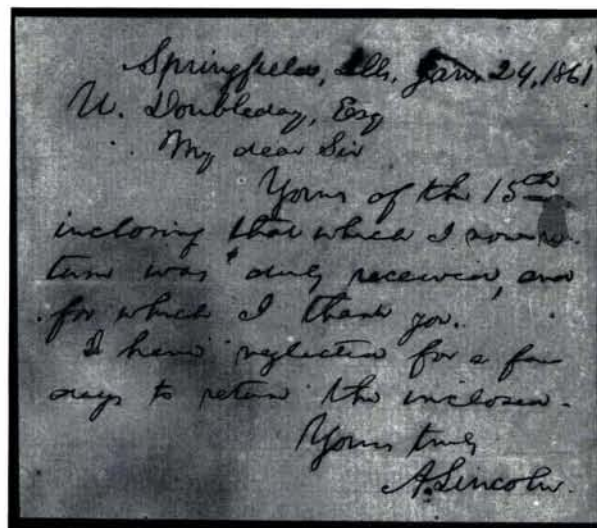 Springfield, Ills. Jan. 24, 1861
U. Doubleday, Esq
My dear Sir
Yours of the 15th
inclosing that which I now re-
turn was duly received, and
for which I thank you.
I have neglected for a few
days to return the inclosed.
Yours truly
A. Lincoln.